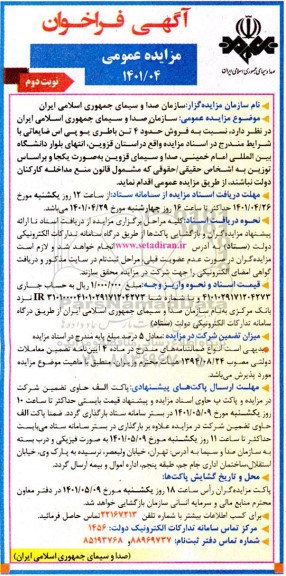 آگهی فراخوان
مزایده عمومی
۱۴۰۱/۰۴
نوبت دوم
صدا و سیمای جمهوری اسلامی ایران
نام سازمان مزایده‌گزار: سازمان صدا و سیمای جمهوری اسلامی ایران
موضوع مزایده عمومی: سازمان صدا و سیمای جمهوری اسلامی ایران
در نظر دارد، نسبت به فروش حدود ۴ تن باطری یو پی اس ضایعاتی با
شرایط مندرج در اسناد مزایده واقع در استان قزوین، انتهای بلوار دانشگاه
بین المللی امام خمینی، صدا و سیمای قزوین به‌صورت یکجا و براساس
توزین به اشخاص حقیقی/حقوقی که مشمول قانون منع مداخله کارکنان
دولت نباشند، از طریق مزایده عمومی اقدام نماید.
مهلت دریافت اسناد مزایده از سامانه ستاد: از ساعت ۱۲ روز یکشنبه مورخ
۱۴۰۱/۰۴/۲۶ حداکثر تا ساعت ۱۶ روز چهارشنبه مورخ ۱۴۰۱/۰۴/۲۹ می‌باشد.
نحوه دریافت اسناد: کلیه مراحل برگزاری مزایده از دریافت اسناد تا ارائه
پیشنهاد مزایده‌گران و بازگشایی پاکت‌ها از طریق درگاه سامانه تدارکات الکترونیکی
دولت (ستاد) به آدرس www.setadiran.ir انجام خواهد شد و لازم است
مزایده‌گران در صورت عدم عضویت قبلی، مراحل ثبت‌نام در سایت مذکور و دریافت
گواهی امضای الکترونیکی را جهت شرکت در مزایده محقق سازند.
قیمت اسناد و نحوه واریز وجه: مبلغ ۱/۰۰۰/۰۰۰ ریال به حساب جاری
بانک مرکزی به‌نام سازمان صدا و سیمای جمهوری اسلامی ایران از طریق درگاه
سامانه تدارکات الکترونیکی دولت (ستاد)
میزان تضمین شرکت در مزایده: معادل ۵ درصد مبلغ پایه مندرج در اسناد مزایده
مورد پذیرش می‌باشد.
مهلت ارسال پاکت‌های پیشنهادی: پاکت الف حاوی تضمین شرکت
در مزایده و پاکت ب حاوی اسناد مزایده و پیشنهاد قیمت بایستی حداکثر تا ساعت ۱۰
روز یکشنبه مورخ ۱۴۰۱/۰۵/۰۹ در بستر سامانه ستاد بارگذاری گردد. ضمنا پاکت الف
حاوی تضمین شرکت در مزایده علاوه بر بارگذاری در بستر سامانه ستاد می‌بایست
حداکثر تا ساعت ۱۱ روز یکشنبه مورخ ۱۴۰۱/۰۵/۰۹ به صورت فیزیکی و درب بسته
به سازمان صدا و سیما به آدرس: تهران، خیابان ولیعصر، نرسیده به پارک وی، خیابان
استقلال، ساختمان اداری جام جم، طبقه پنجم، اداره اموال و بیمه ارسال گردد.
محل و تاریخ گشایش پاکت‌ها:
پاکت مزایده‌گران رأس ساعت ۱۸ روز یکشنبه مورخ ۱۴۰۱/۰۵/۰۹ در دفتر معاون
محترم منابع مالی و سرمایه انسانی سازمان بازگشایی خواهد شد.
برای کسب اطلاعات بیشتر با شماره تلفن ۲۲۱۶۷۲۱۳ تماس حاصل فرمائید.
مرکز تماس سامانه تدارکات الکترونیک دولت: ۱۴۵۶
شماره تماس دفتر ثبت‌نام: ۸۸۹۶۹۷۳۷ و ۸۵۱۹۳۷۶۸
(صدا و سیمای جمهوری اسلامی ایران)